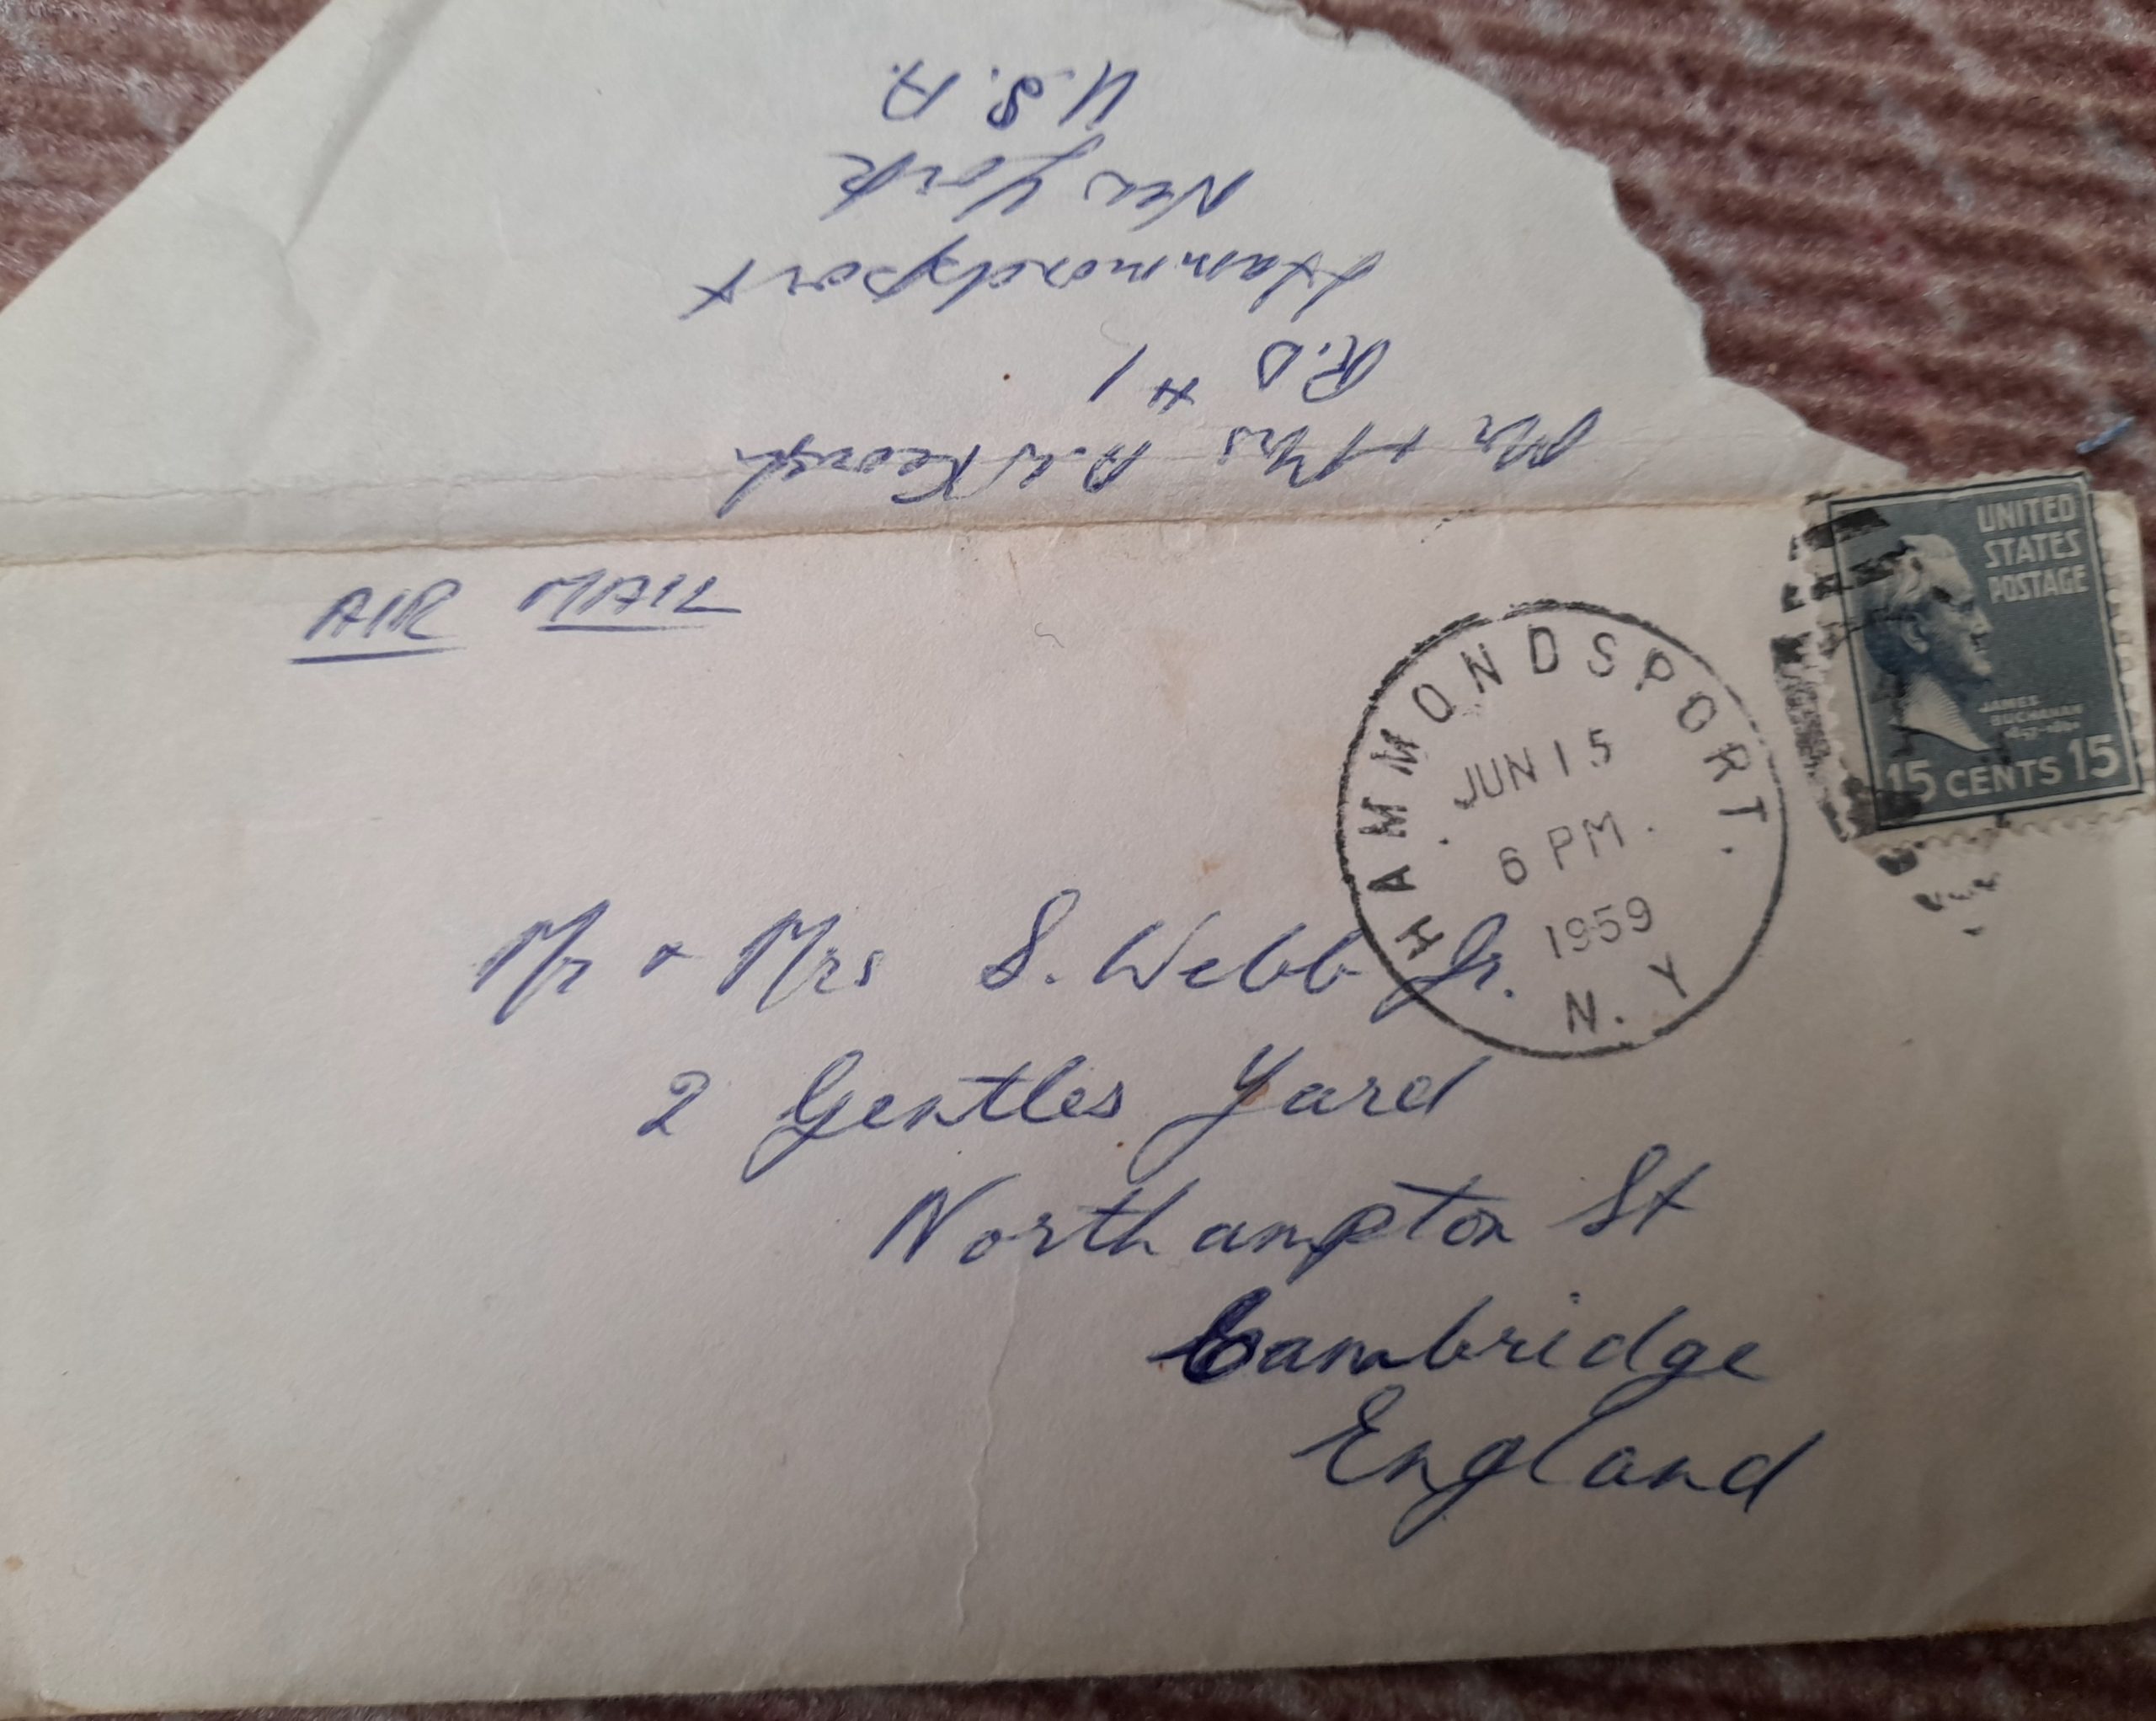 Mr + Mrs A.W Keough
R.D #1
Hammondsport
New York
U.S.A.
AIR MAIL
UNITED
STATES
POSTAGE
JAMES
BUCHANAN
1857-1861
15 CENTS 15
HAMMONDSPORT.
JUN 15
6 PM
1959
N.Y
Mr & Mrs S. Webb Jr.
2 Gentles Yard
Northampton St
Cambridge
England